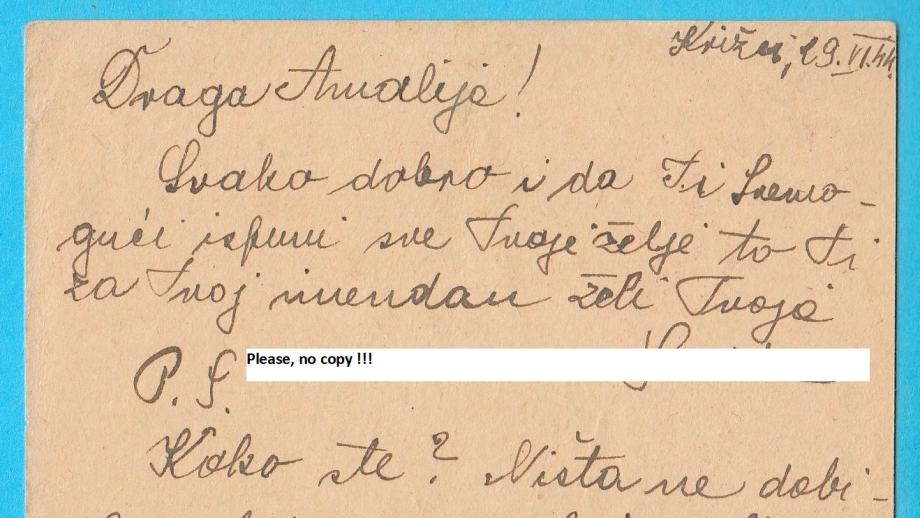 Križevci, 29.VI.44.
Draga Amalija!
Svako dobro i da Ti Svemo-
gući ispuni sve Tvoje želje to Ti
za Tvoj imendan želi Tvoja
Please, no copy !!!
P.S.
Kako ste? Ništa ne dobi-